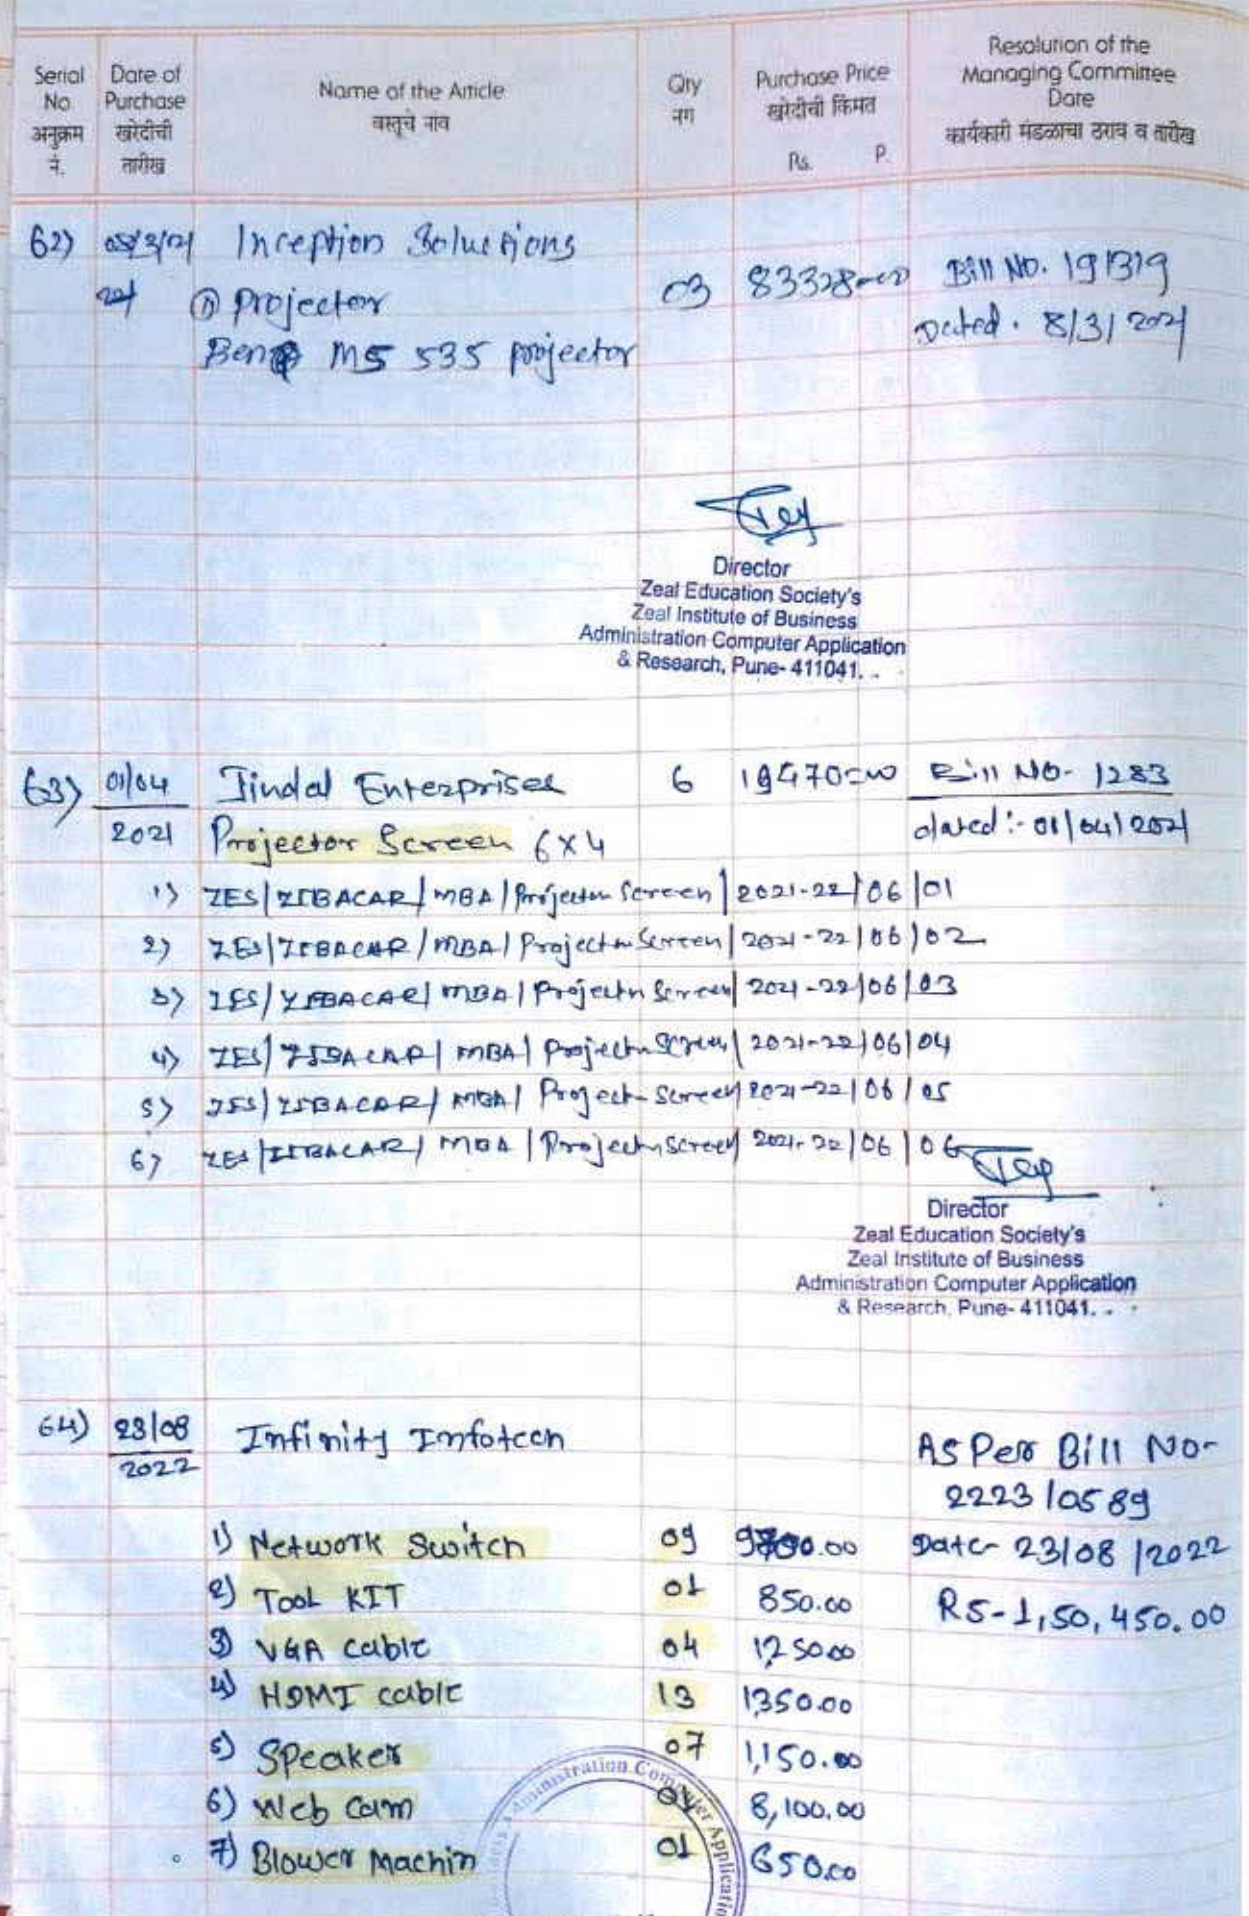 Serial No अनुक्रम नं.
Date of Purchase खरेदीची तारीख
Name of the Article वस्तूचे नांव
Qty नग
Purchase Price खरेदीची किंमत Rs. P.
Resolution of the Managing Committee Date कार्यकारी मंडळाचा ठराव व तारीख
62) Inception Solutions
① Projector 03 83328=00 Bill NO. 191319
BenQ MS 535 projector Dated. 8/3/2021
Director
Zeal Education Society's
Zeal Institute of Business
Administration Computer Application
& Research, Pune- 411041.
63) 01/04 Jindal Enterprises 6 19470=00 Bill NO- 1283
2021 Projector Screen 6x4 dated:- 01/04/2021
1) ZES/ZIBACAR/MBA/Projector Screen/2021-22/06/01
2) ZES/ZIBACAR/MBA/Projector Screen/2021-22/06/02
3) ZES/ZIBACAR/MBA/Projector Screen/2021-22/06/03
4) ZES/ZIBACAR/MBA/Projector Screen/2021-22/06/04
5) ZES/ZIBACAR/MBA/Projector Screen/2021-22/06/05
6) ZES/ZIBACAR/MBA/Projector Screen/2021-22/06/06
Director
Zeal Education Society's
Zeal Institute of Business
Administration Computer Application
& Research, Pune- 411041.
64) 23/08 Infinity Infotech AS Per Bill No-
2022 2223/0589
1) Network Switch 09 Date- 23/08/2022
2) Tool KIT 01 850.00 RS-1,50,450.00
3) VGA cable 04 1250.00
4) HDMI cable 13 1350.00
5) Speaker 07 1,150.00
6) Web cam 8,100.00
7) Blower Machin 01 650.00
Administration Computer Application